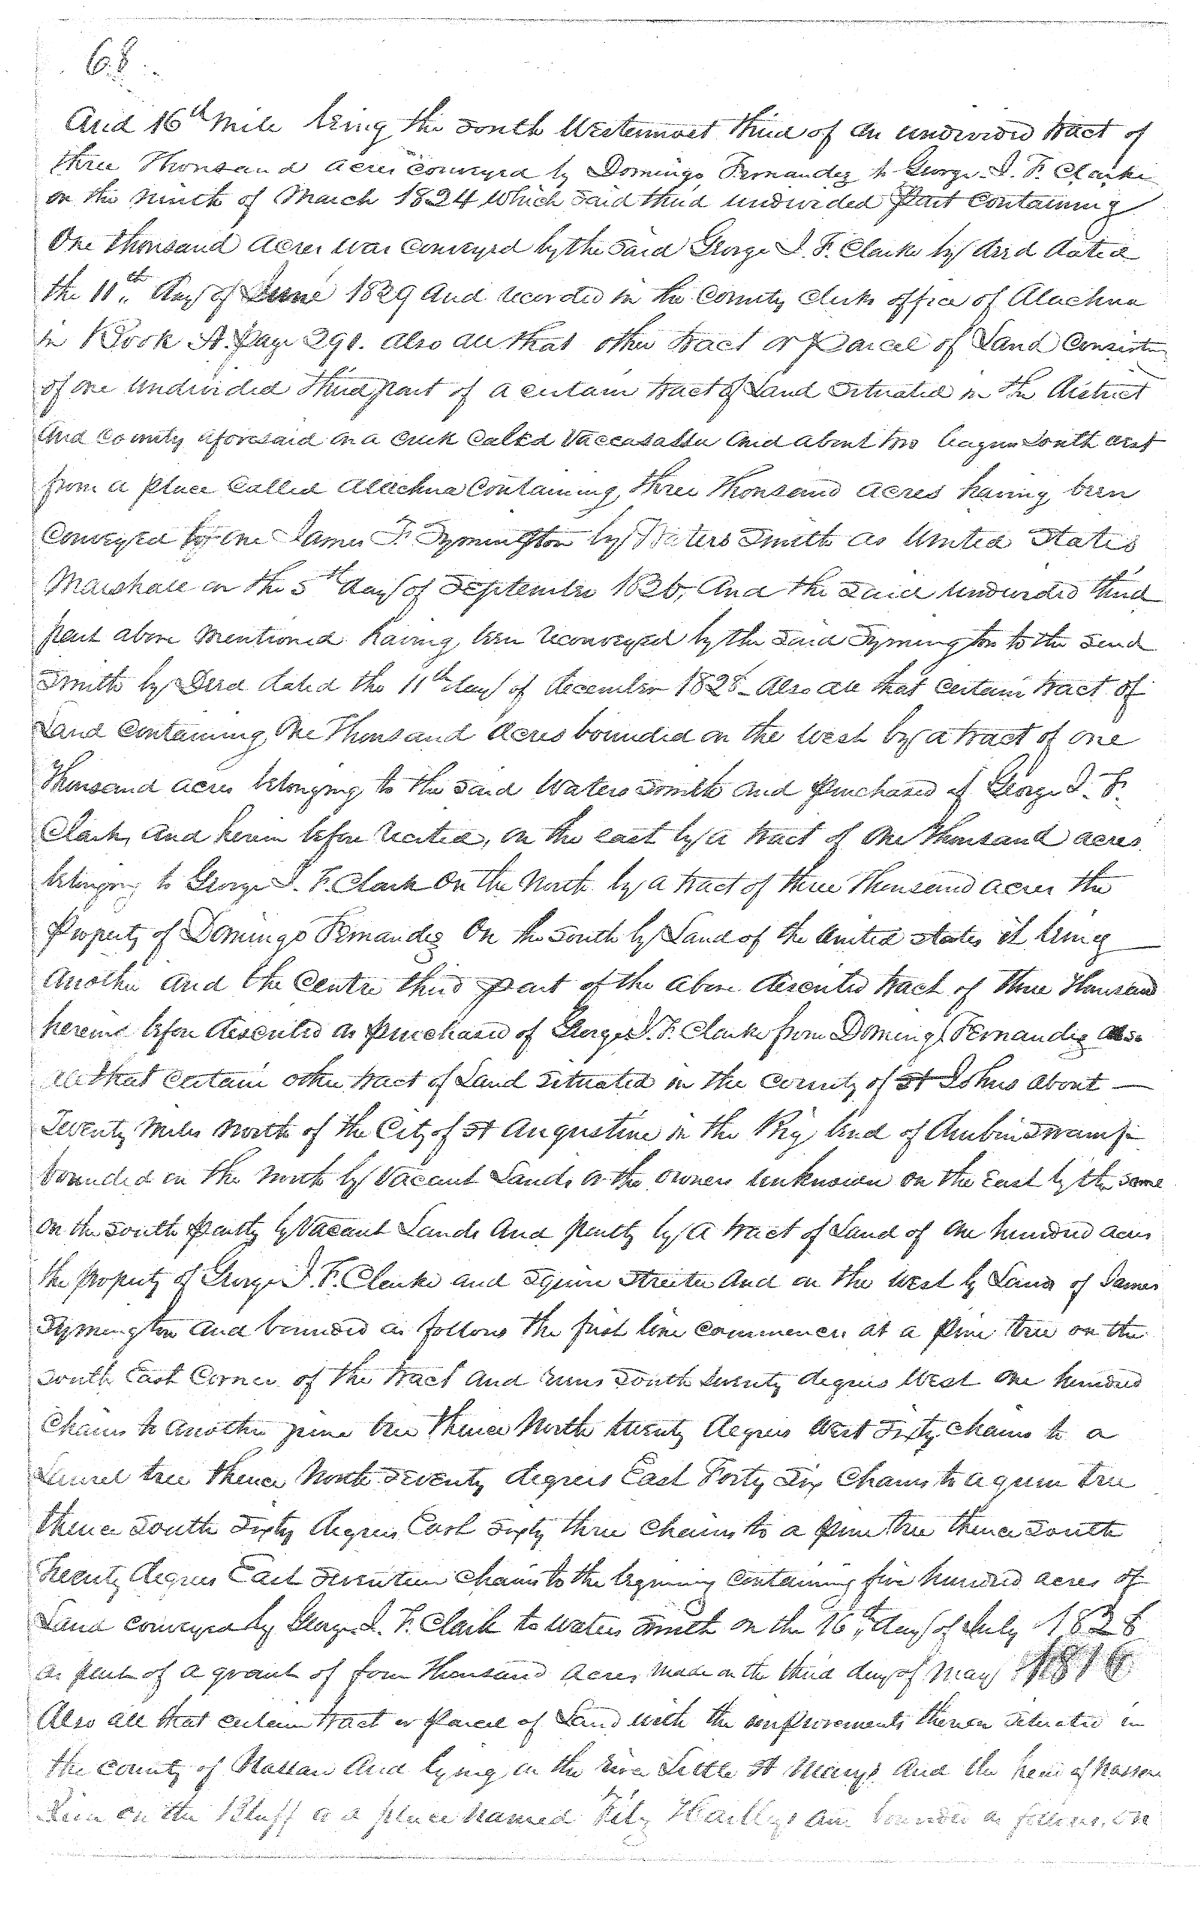 68
And 16th Mile being the South Westernmost third of an undivided tract of
three Thousand acres conveyed by Domingo Fernandez to George I. F. Clarke
on the Ninth of March 1824 which said third undivided Part Containing
One thousand acres was conveyed by the said George I. F. Clarke by deed dated
the 11th day of June 1829 And recorded in the County Clerks office of Alachua
in Book A. Page 291. also all that other tract or parcel of Land Consistin
of one undivided third part of a certain tract of Land situated in the district
And County aforesaid on a creek called Vaccasassa and about two leagues South West
from a place called Alachua Containing three thousand acres having been
Conveyed to one James F Symington by Waters Smith as United States
Marshall on the 5th day of September 1826, And the said undivided third
part above mentioned having been reconveyed by the said Symington to the said
Smith by Deed dated the 11th day of december 1828 Also all that certain tract of
Land Containing One Thousand Acres bounded on the West by a tract of one
Thousand acres belonging to the said Waters Smith and purchased of George I. F.
Clark, and herein before recited, on the east by a tract of One thousand acres
belonging to George I. F. Clark On the North by a tract of three Thousand acres the
Property of Domingo Fernandez On the South by Land of the United States it being
another and the Centre third part of the above described tract of three Thousand
herein before described as purchased of George I. F. Clarke from Domingo Fernandez also
all that certain other tract of Land situated in the county of St Johns about
Seventy Miles North of the City of St Augustine in the Big bend of Swamp
bounded on the North by Vacant Lands or the owners unknown on the East by the same
on the South partly by Vacant Lands And partly by a tract of Land of One hundred acres
the property of George I. F. Clarke and Squire Streeter And on the West by Land of James
Symington And bounded as follows the first line commences at a pine tree on the
South East Corner of the tract and runs South Seventy degrees West One hundred
Chains to another pine tree thence North twenty degrees West Sixty chains to a
Laurel tree thence North Seventy degrees East Forty Six Chains to a gum tree
thence South Sixty degrees East Sixty three chains to a pine tree thence South
Twenty degrees East Seventeen chains to the beginning containing five hundred acres of
Land conveyed by George I. F. Clark to Waters Smith on the 16th day of July 1828
as part of a grant of four thousand acres made on the third day of May 1816
Also all that certain tract or parcel of Land with the improvements thereon situated in
the County of Nassau And lying on the river Little St Marys And the head of Nassau
River on the Bluff at a place named and bounded as follows, On